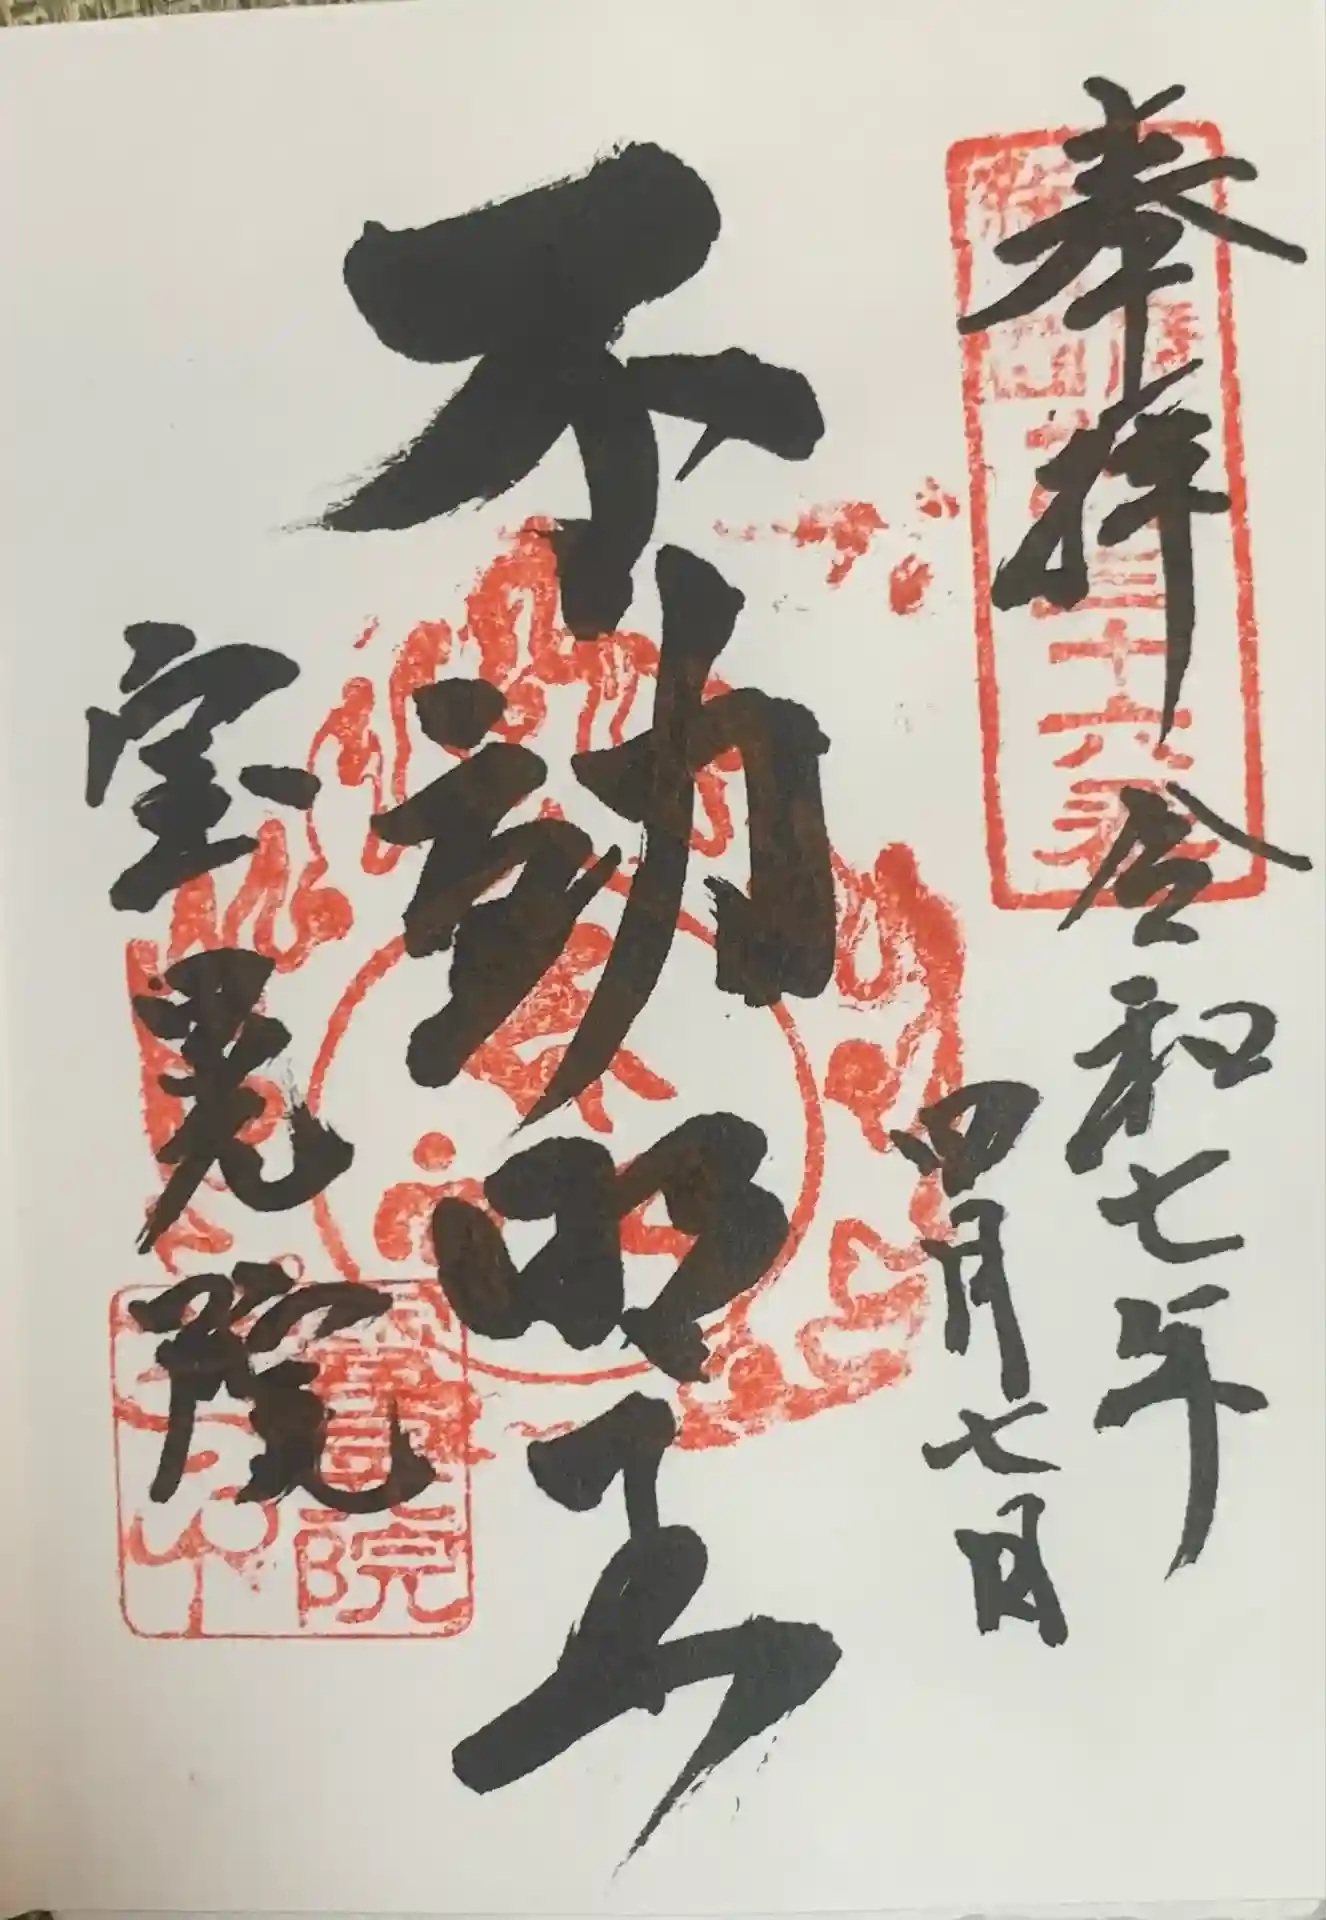 奉拝
令和七年
四月七日
三十六
不動明王
宝晃院
院